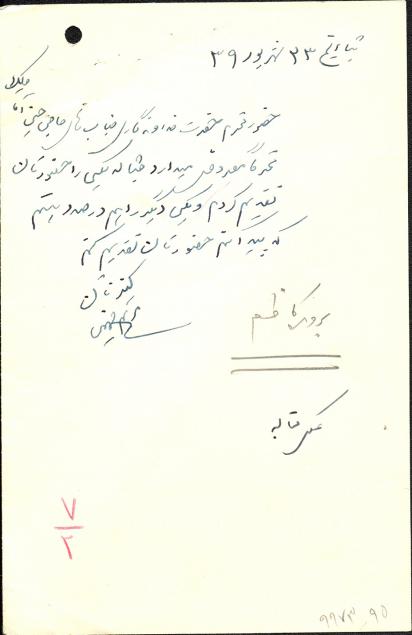 بتاریخ ۲۳ شهریور ۳۹
حضور محترم حضرت خداوندگاری جناب آقای حاجی حسین آقا ملک
محترما معروض میدارد قباله یکی را حضورتان
تقدیم کردم و یکی دیگر را هم درصدد هستم
که پیدا کنم حضورتان تقدیم کنم
کمترتان
پرونده کاظم
عکس قباله
۷
۲
۹۹۷۳ ۹۵